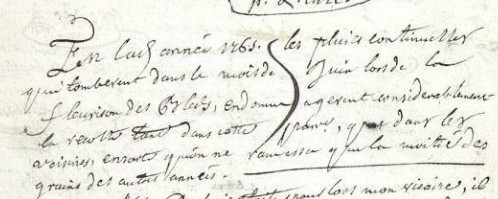 En lad. année 1765. les pluies continuelles
qui tomberent dans le mois de Juin lors de la
fleurison des Bleds, endommagerent considerablement
la recolte tant dans cette paroi. que dans les
voisines, ensorte qu'on ne ramassa que la moitié des
grains des autres années.
mon vicaire, il